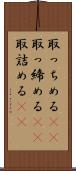 取っちめる
取っ締める
取詰める